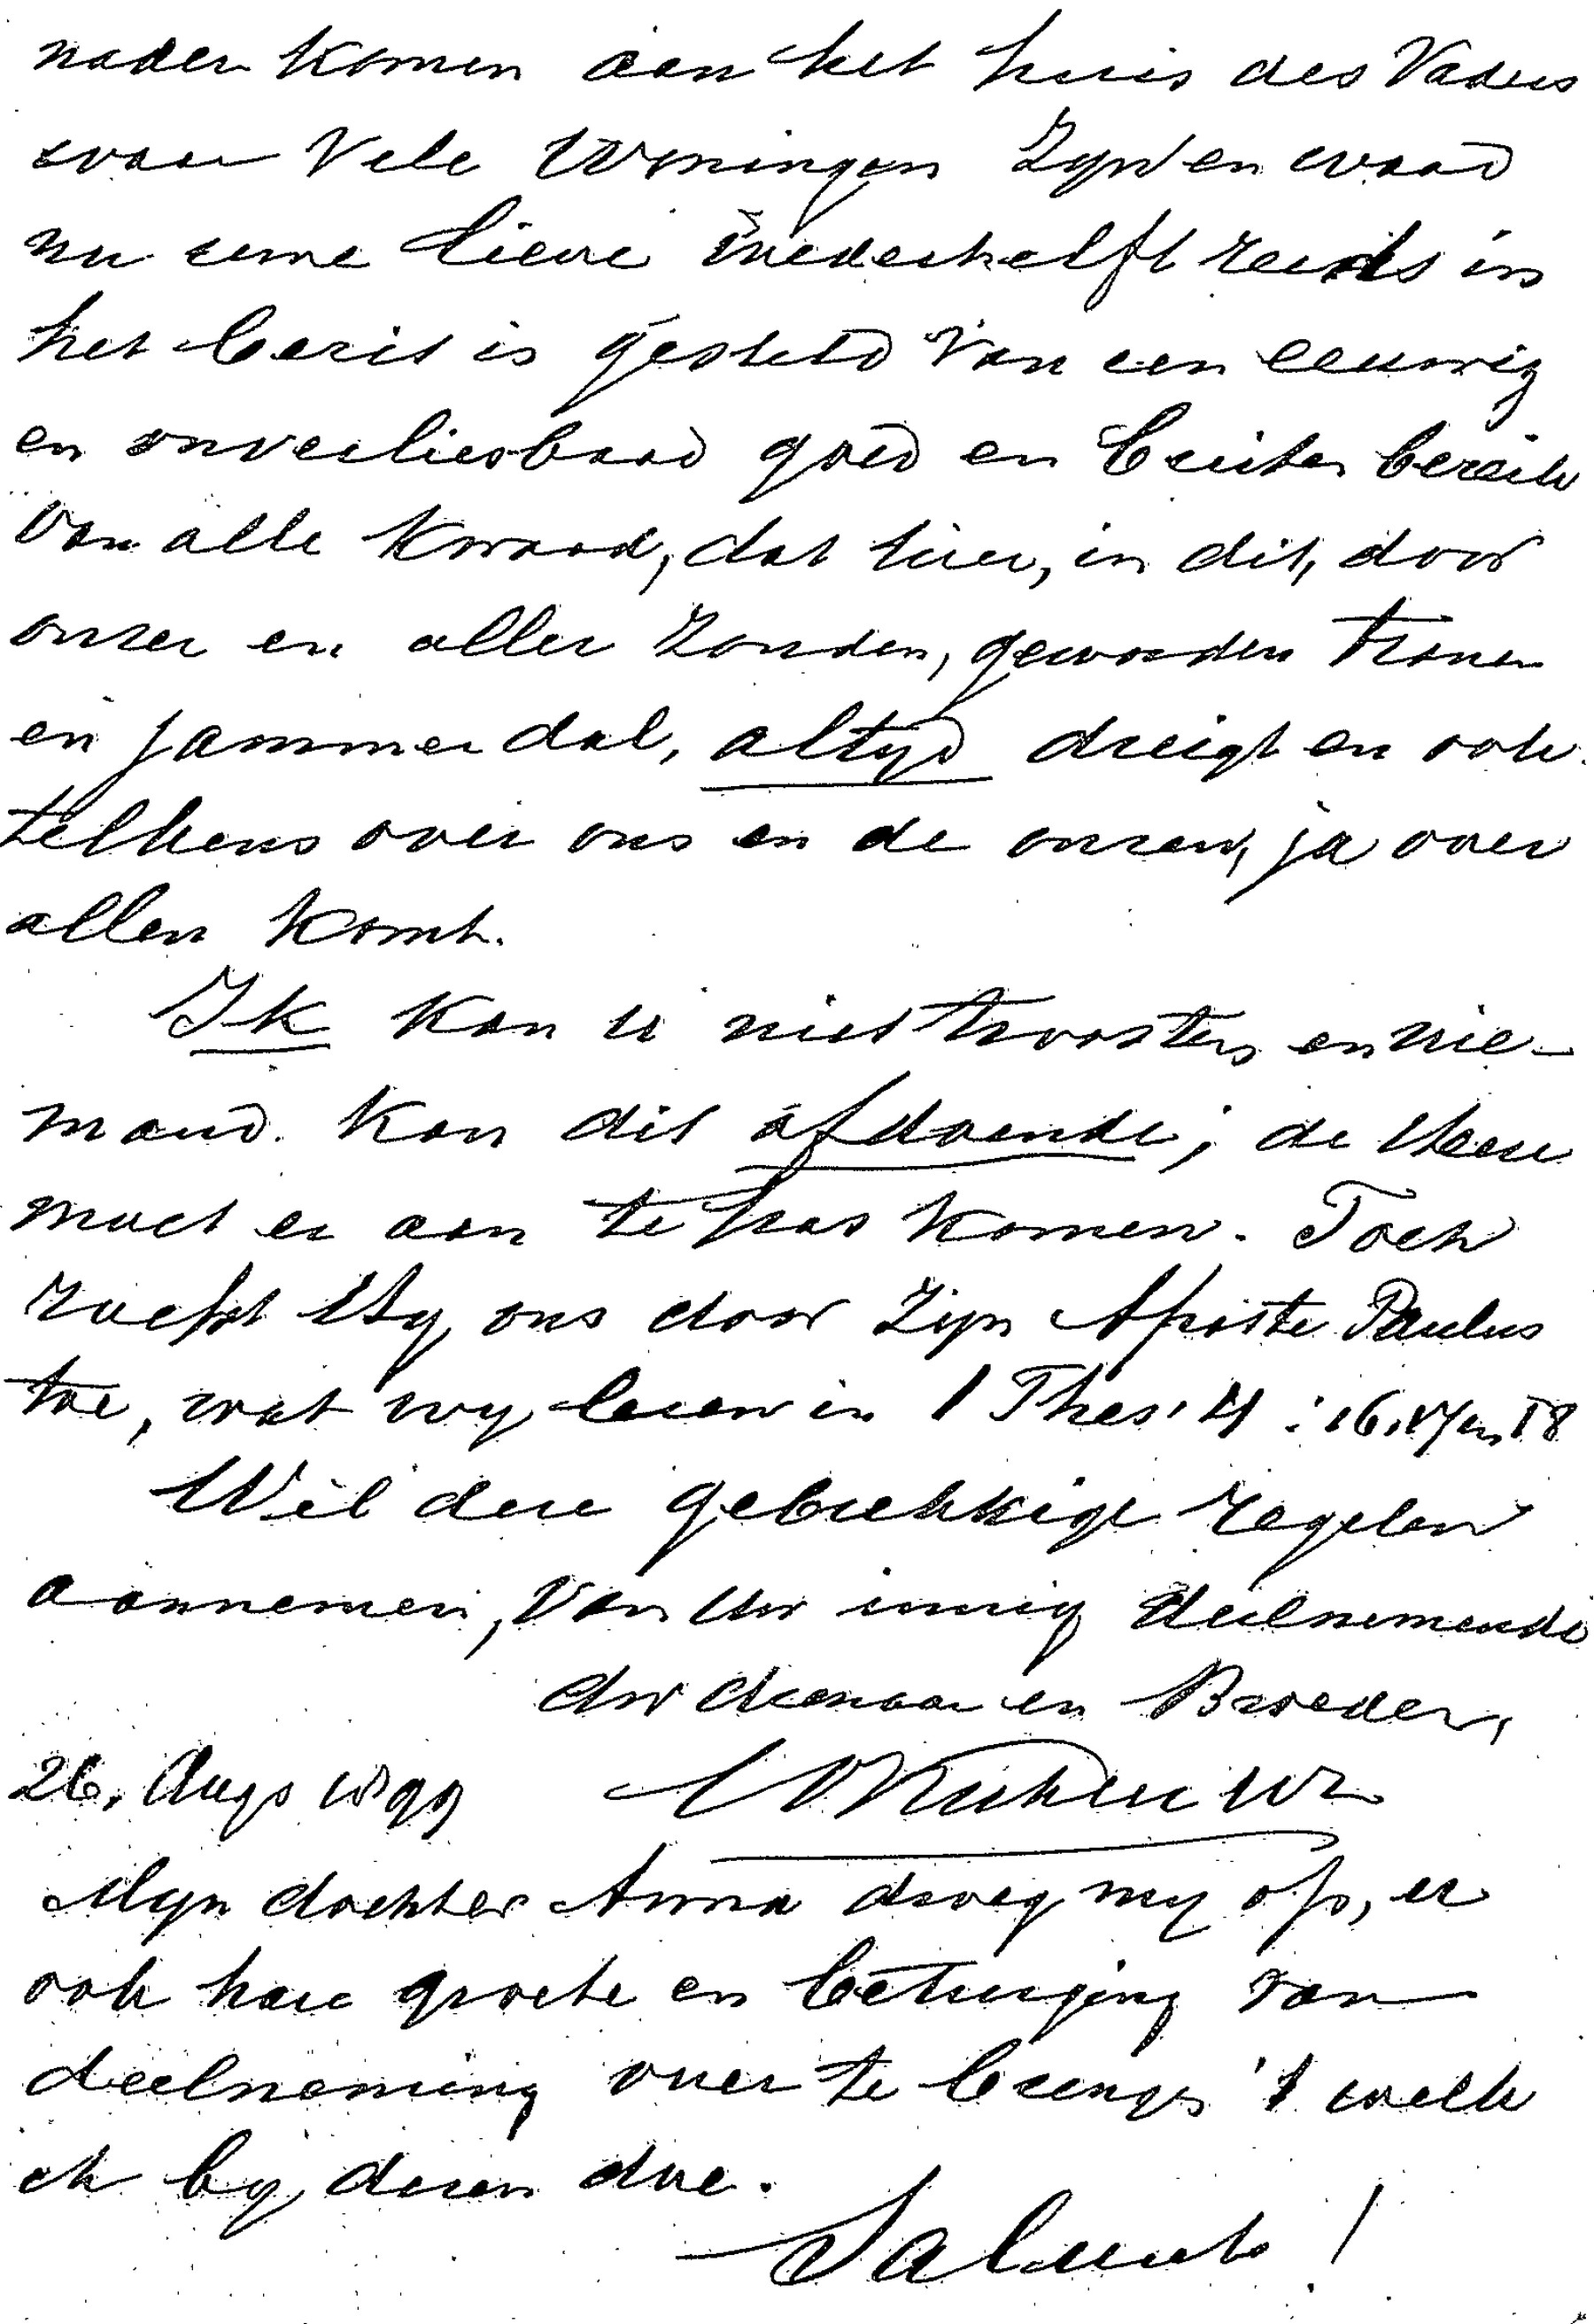 nader komen aan het huis des Vaders
waar Vele Woningen Zyn en waar
nu uwe lieve wederhelft reeds in
het bezit is gesteld van een eeuwig
en onverliesbaar goed en buiten bereik
van alle kwaad, dat hier, in dit, door
onzer en aller zonden, geworden tranen
en jammerdal, altyd dreigt en ook
telkens over ons en de onzen, ja over
allen komt.
Ik kan u niet troosten en nie-
mand kan dit afdoende; de Heere
moet er aan te pas komen. Toch
roept Hy ons door Zyn Apostel Paulus
toe, wat wy lezen in 1 Thes. 4 : 16, 17 en 18
Wil deze gebrekkige regelen
aannemen, van Uw innig deelnemende
dw dienaar en Broeder,
26. Augs 1899
Myn dochter Anna droeg my op, er
ook hare groete en betuiging van
deelneming over te brengen 't welk
ik by dezen doe.
Saluut!